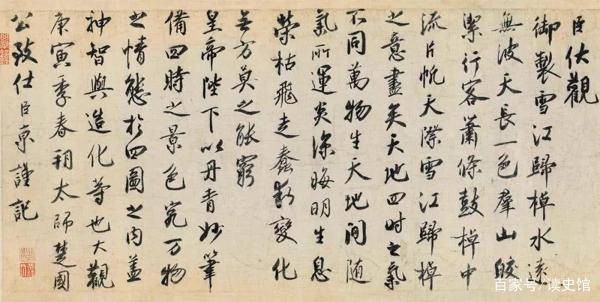 臣伏觀
御製雪江歸棹水遠
無波天長一色羣山皎
潔行客蕭條鼓棹中
流片帆天際雪江歸棹
之意盡矣天地四時之氣
不同萬物生天地間隨
氣所運炎涼晦明生息
榮枯飛走蠢動變化
無方莫之能窮
皇帝陛下以丹青妙筆
備四時之景色究万物
之情態於四圖之內蓋
神智與造化等也大觀
庚寅季春朔太師楚國
公致仕臣京謹記
百家号/读史馆